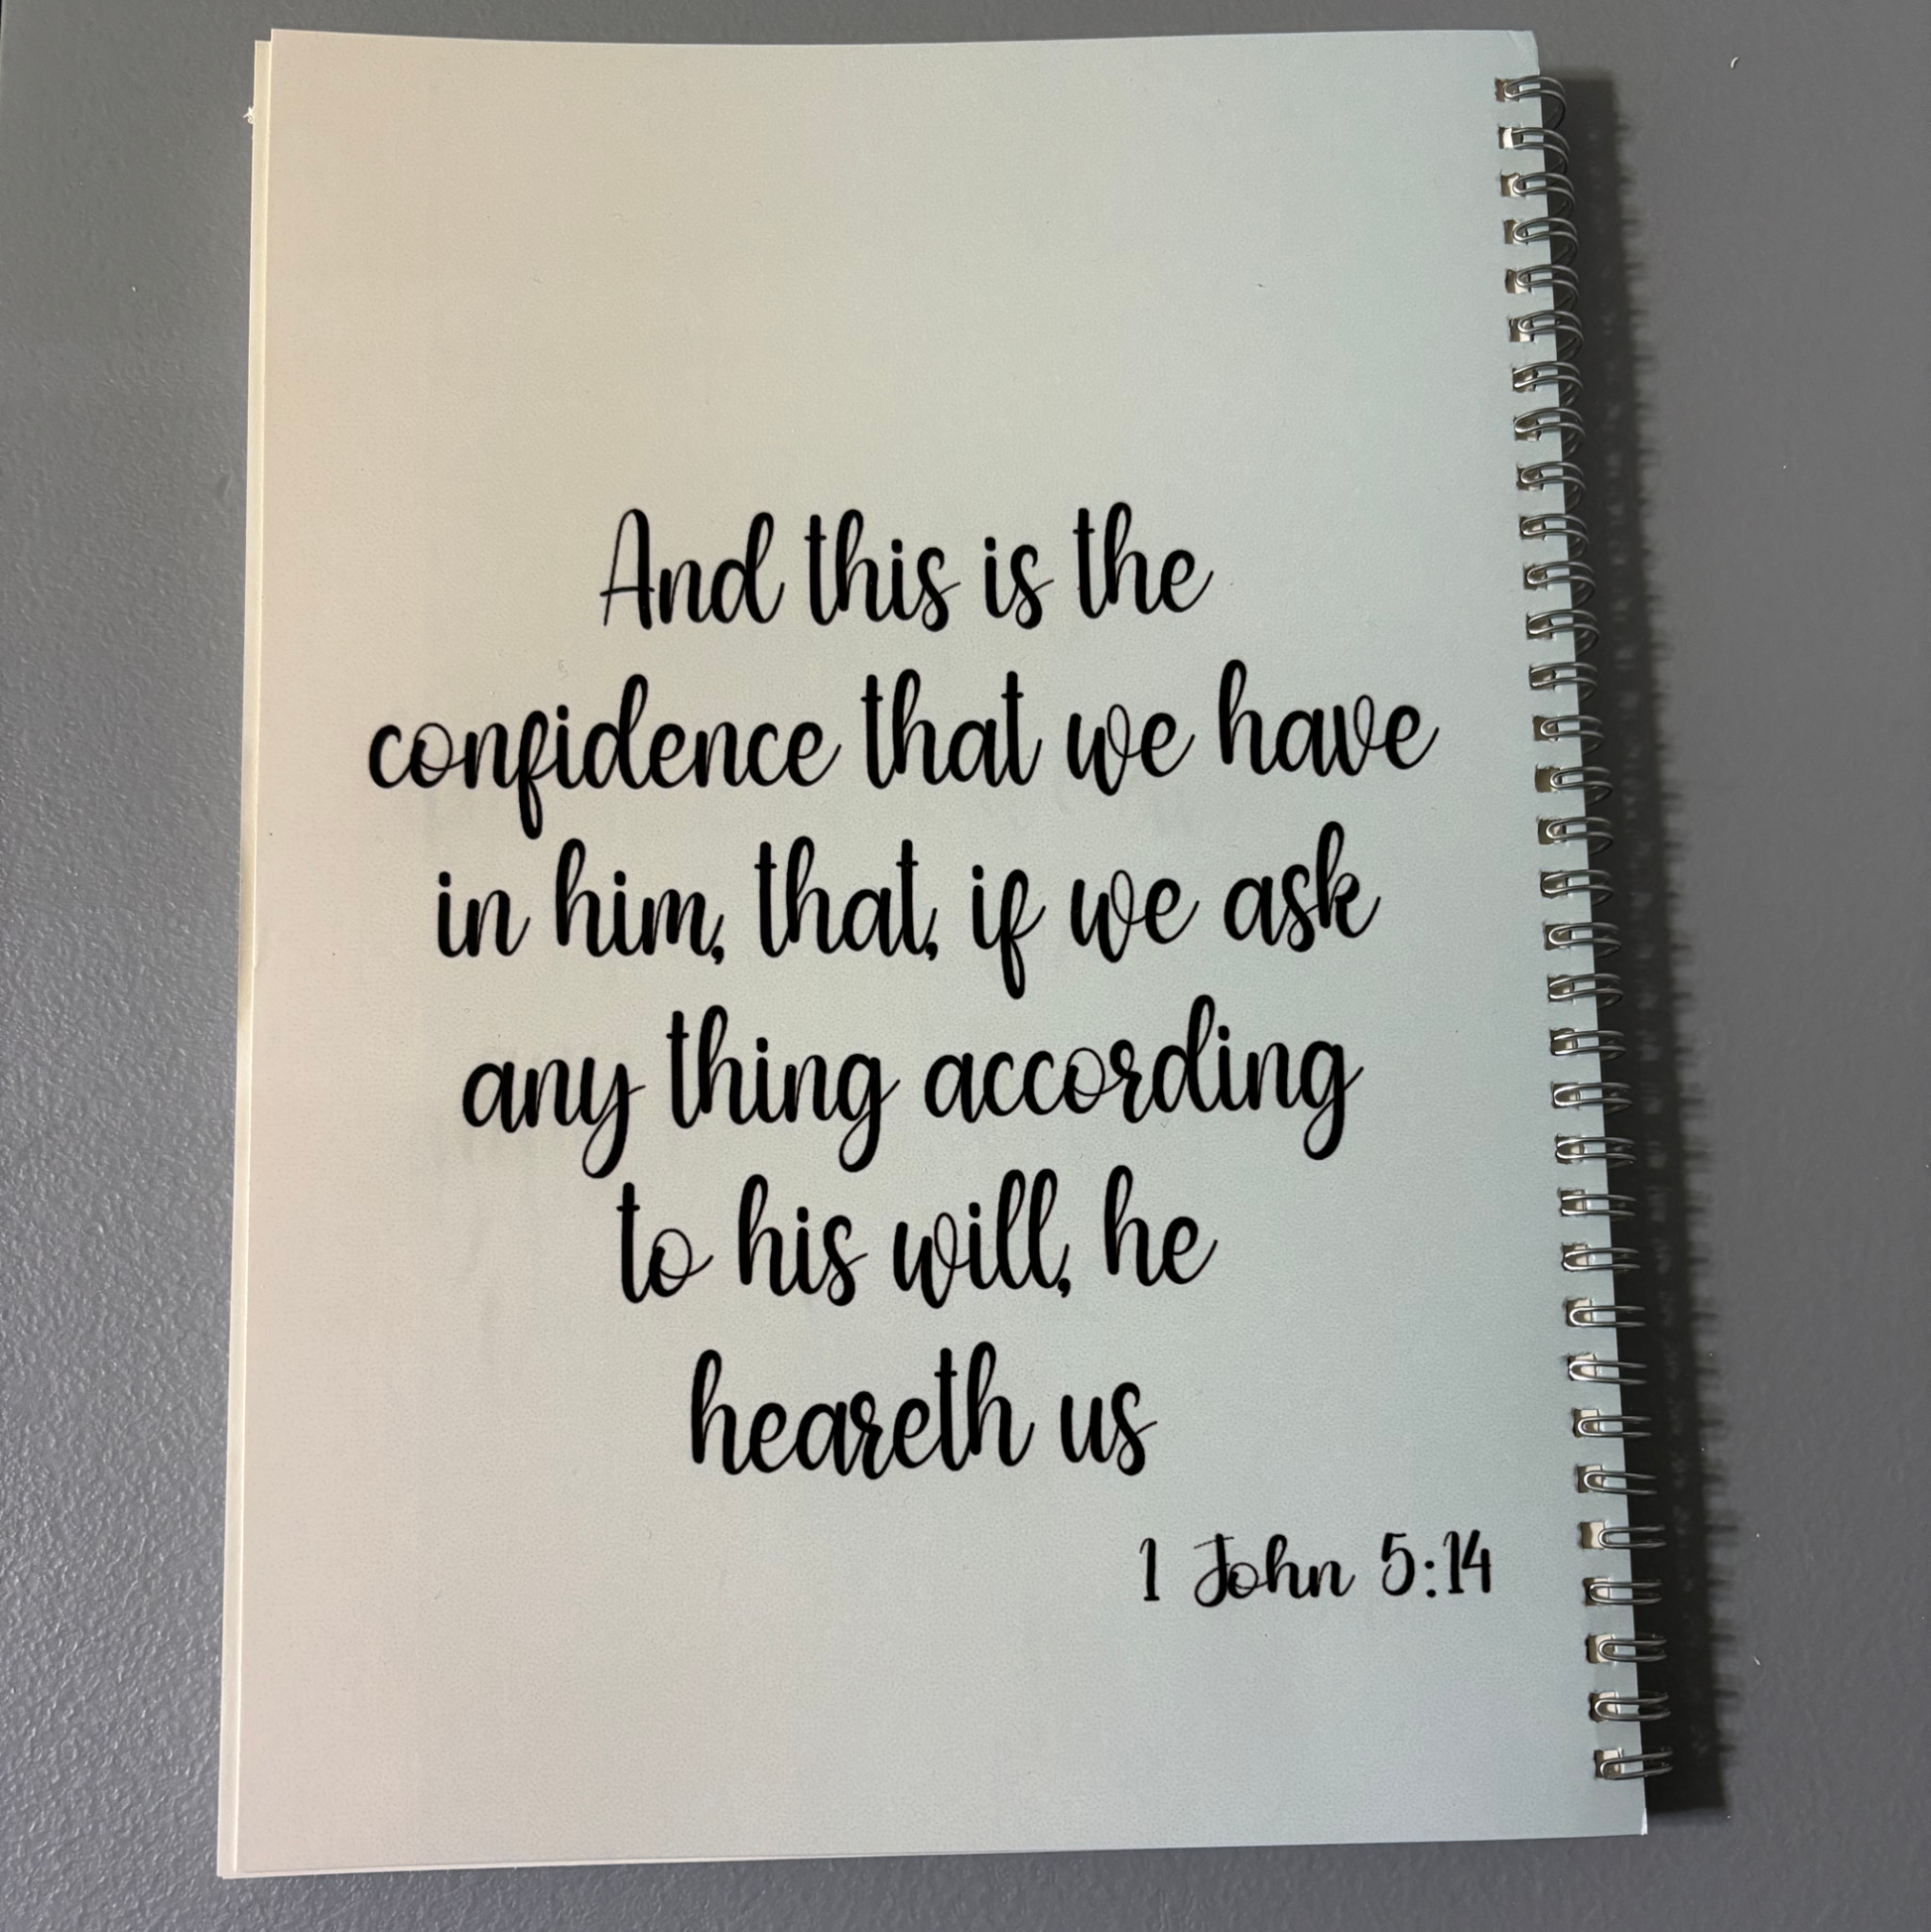 And this is the
confidence that we have
in him, that, if we ask
any thing according
to his will, he
heareth us
1 John 5:14